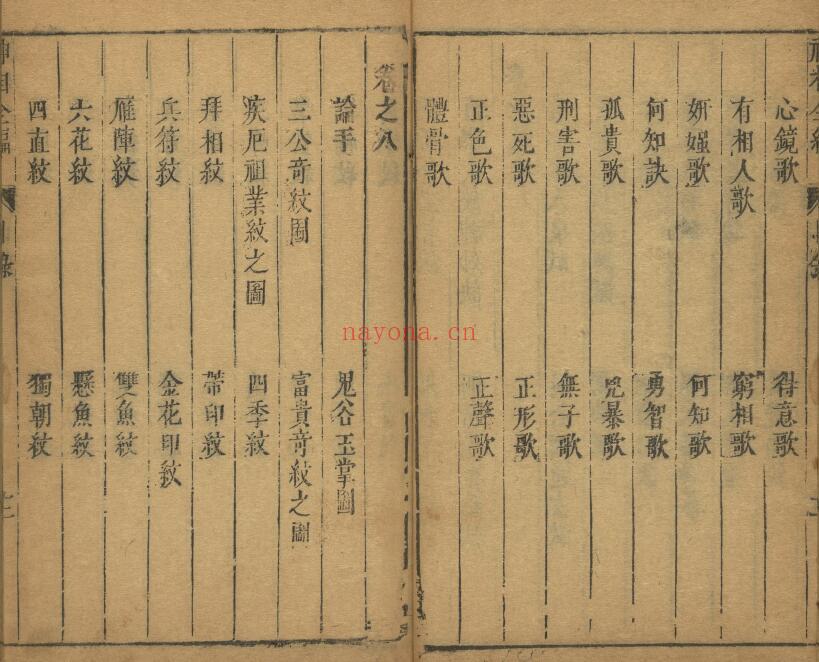 心鏡歌 得意歌
有相人歌 窮相歌
妍媸歌 何知歌
何知訣 勇智歌
孤貴歌 兇暴歌
刑害歌 無子歌
惡死歌 正形歌
正色歌 正聲歌
體骨歌
卷之八
論手 鬼谷玉掌圖
三公奇紋圖 富貴奇紋之圖
疾厄祖業紋之圖 四季紋
拜相紋 帶印紋
兵符紋 金花印紋
雁陣紋 雙魚紋
六花紋 懸魚紋
四直紋 獨朝紋
nayona.cn